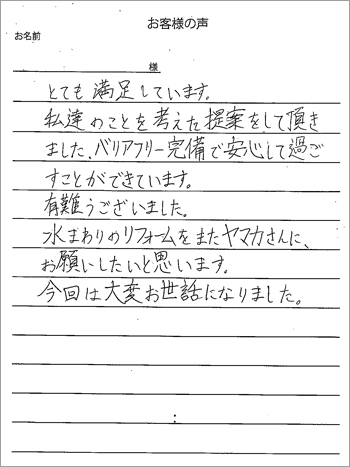 お客様の声
お名前
様
とても満足しています。
私達のことを考えた提案をして頂き
ました、バリアフリー完備で安心して過ご
すことができています。
有難うございました。
水まわりのリフォームをまたヤマカさんに、
お願いしたいと思います。
今回は大変お世話になりました。